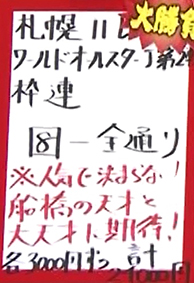 札幌11R
大勝負
ワールドオールスターJ第2戦
枠連
四－全通り
※人気で決まらない!
船橋の天才と
大天才に期待!
各3000円ずつ 計
24000円